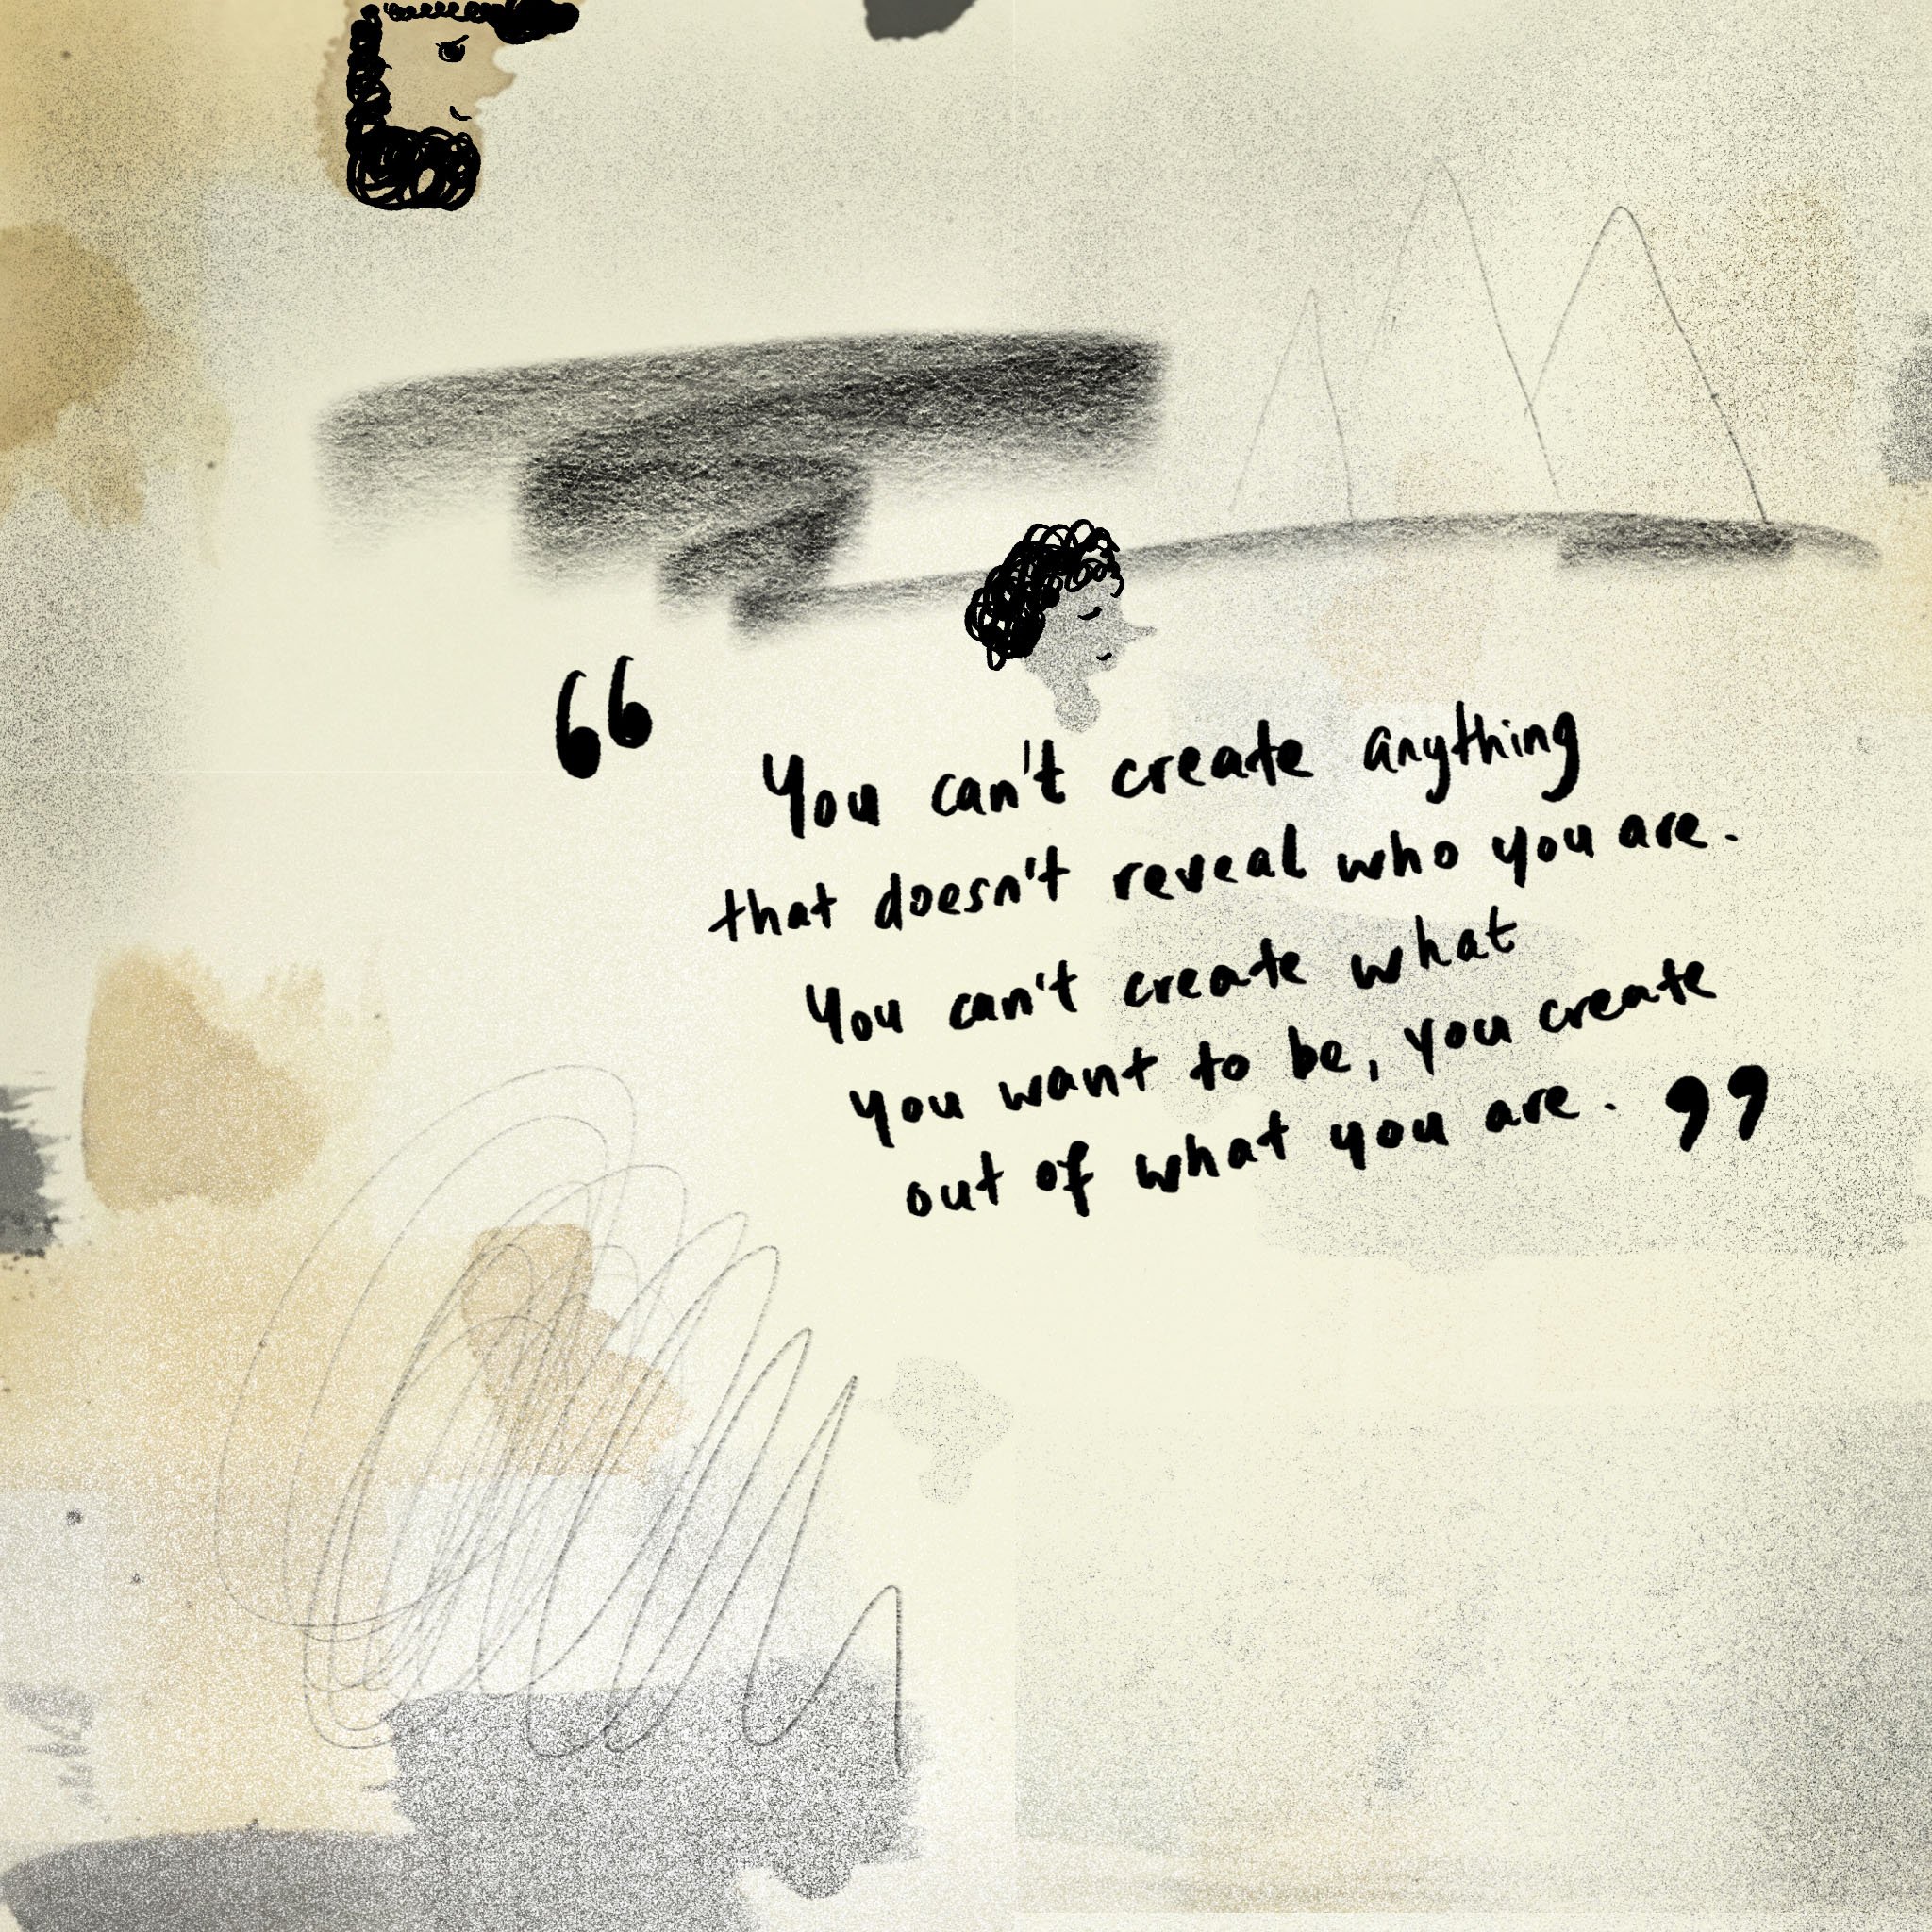 “ You can't create anything
that doesn't reveal who you are.
You can't create what
you want to be, you create
out of what you are. ”